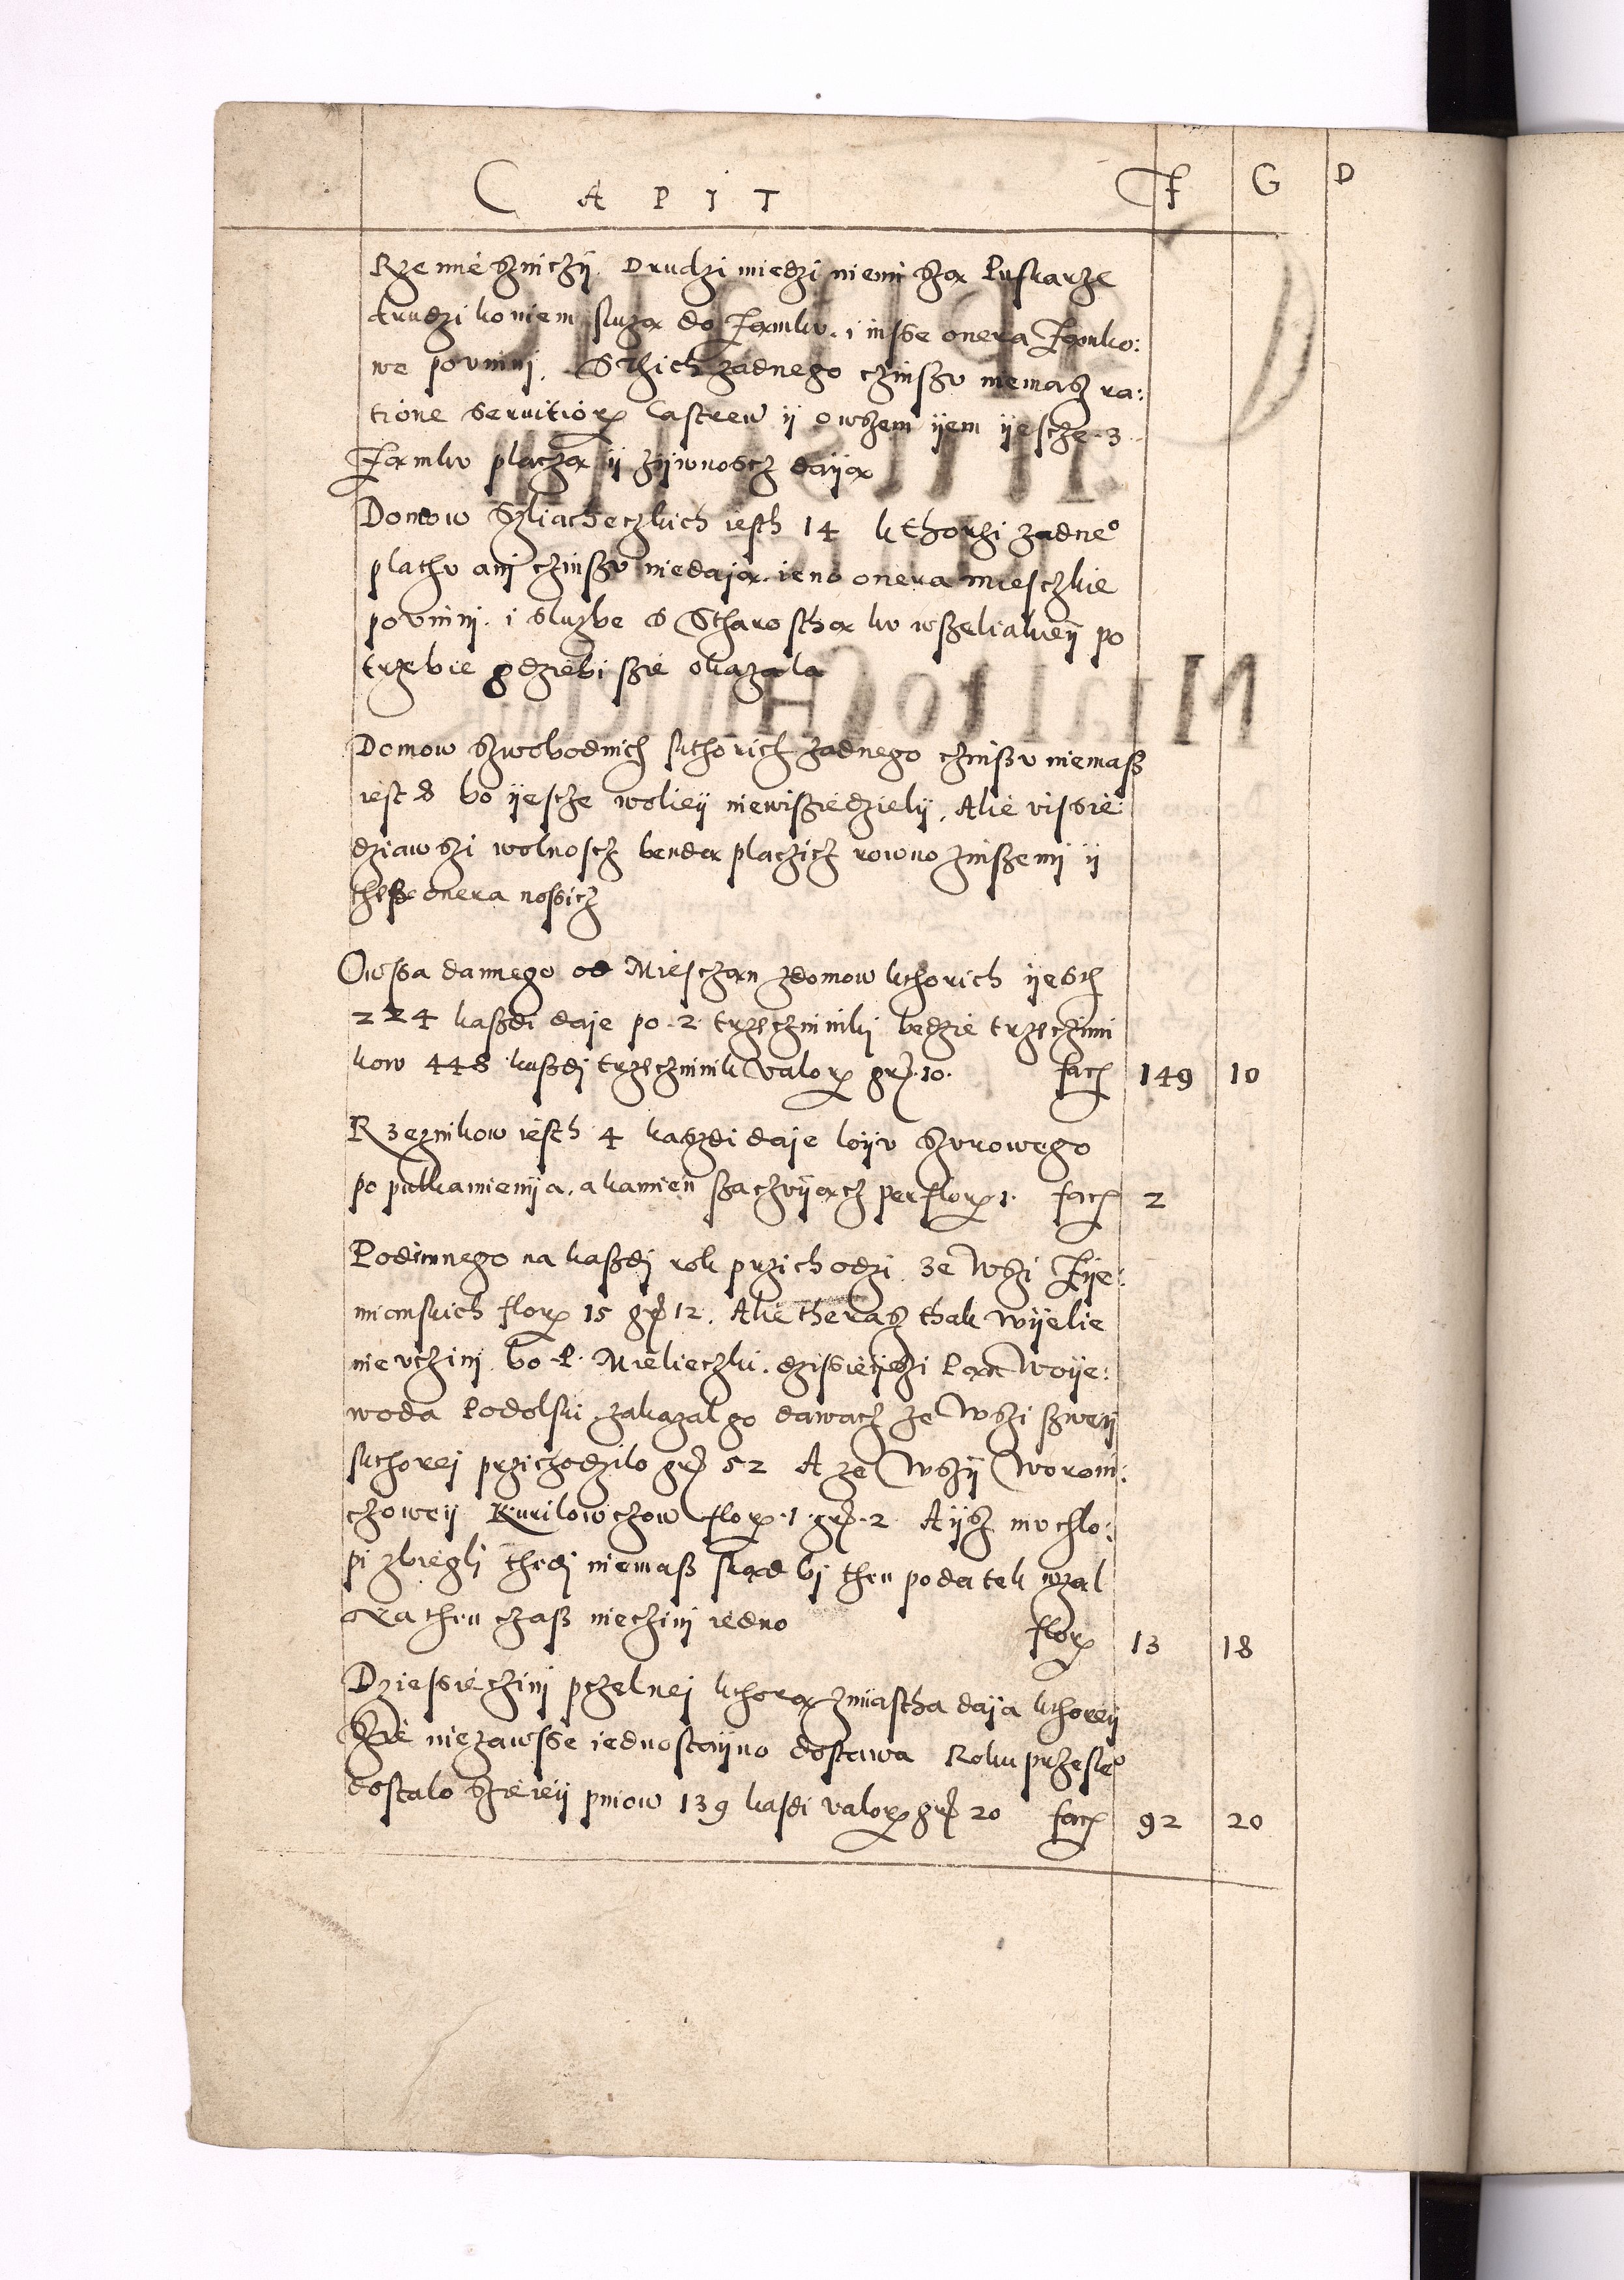 CAPIT F G D
Rzemiesniczÿ. Drudzi miedzi niemi sza Puskarze
drudzi koniem sluza do Zamku. i insse onera Zamko:
we povinni. S Thich zadnego czinszv niemasz ra:
tione servitior Castren ÿ owszem ÿem ÿescze. 3
Zamku placza ÿ zÿwnoscz daÿa
Domow Szliacheczkich iesth 14 kthorzi zadneo
plathv ani czinszv niedaja. ieno onera miesczkie
povinni. i sluzbe S Stharostha kv wszeliakieÿ po
trzebie gdziebi szie okazala
Domow Szwobodnich kthorich zadnego czinszv niemasz
iest 8 bo ÿescze wolieÿ niewisziedzielÿ. Alie vissie
dziawszi wolnoscz benda placzicz rowno zinszemi ÿ
thesz onera nossicz
Owssa dannego od Miesczan zdomow kthorich ÿesth
224 kaszdi daje po .2. trzeczinniki bedzie trzeczinni
kow 448 kaszdi trzeczinnik valor gr. 10. fac 149 10
Rzeznikow iesth 4 kaszdi daje loÿv Szurowego
po pulkamienija. a kamien szaczvÿacz per flor 1. fac 2
Podimnego na kaszdi rok przichodzi ze Wszi Zÿe:
mianskich flor 15 gr 12. Alie theraz thak wÿelie
nie vczini. bo P. Mielieczki. dzissieÿszi Pan Woÿe:
woda Podolski zakazal go dawacz ze Wszi szweÿ
kthorei przichodzilo gr 52 A ze Wszÿ Woroni:
czoweÿ Kurilowczow flor .1. gr .2. Aÿsz mv chlo:
pi zbiegli thedi niemasz skad bj then podatek wzal
Na then czasz nieczini iedno flor 13 18
Dziessieczini pczelnej kthora zmiastha daja kthoreÿ
Szie niezawsse iednostaÿno dostawa Roku przesleo
dostalo Szie ieÿ pniow 139 kasdi valor gr 20 fac 92 20